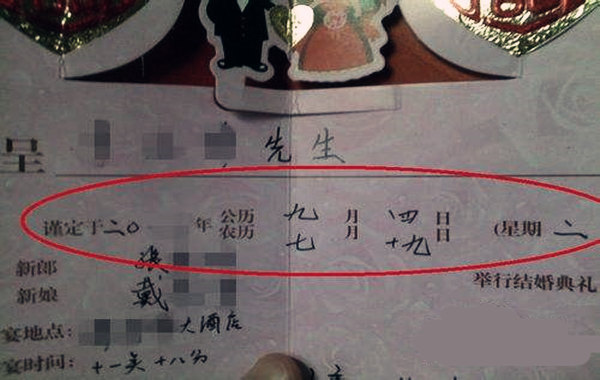 呈 先生
谨定于二〇 年 公历 九 月 四 日 (星期 二
农历 七 月 十九 日
新郎 张
新娘 戴 举行结婚典礼
宴地点: 大酒店
宴时间: 十一点十八分